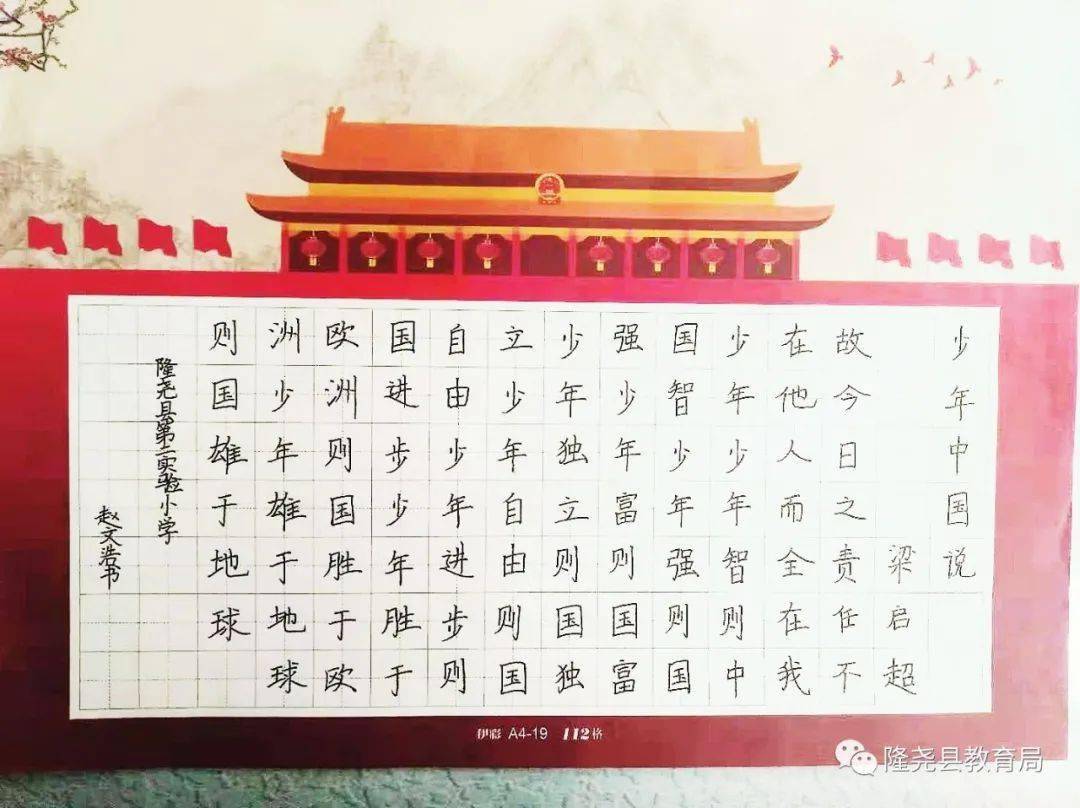 少年中国说
梁启超
故今日之责任不
在他人而全在我
少年少年智则中
国智少年强则国
强少年富则国富
少年独立则国独
立少年自由则国
自由少年进步则
国进步少年胜于
欧洲则国胜于欧
洲少年雄于地球
则国雄于地球
隆尧县第二实验小学
赵文浩书
伊彩 A4-19 112格
隆尧县教育局